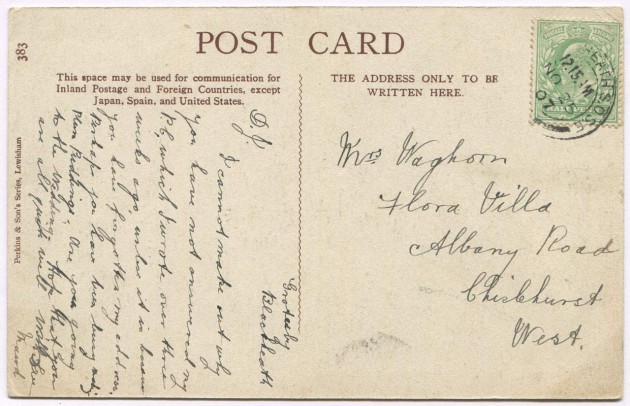 383
POST CARD
This space may be used for communication for
Inland Postage and Foreign Countries, except
Japan, Spain, and United States.
THE ADDRESS ONLY TO BE
WRITTEN HERE.
12.15 PM
NO
07
Mrs Waghorn
Flora Villa
Albany Road
Chislehurst
West.
Blackheath
D.J.
I cannot make out why
you have not answered my
PC, which I wrote over three
weeks ago, unless it is because
you have forgotten my address.
Perhaps you have been busy
Plum Puddings. Are you going
to the Wedding. Hope that you
are all quite well. With love
Maud
Perkins & Son's Series, Lewisham